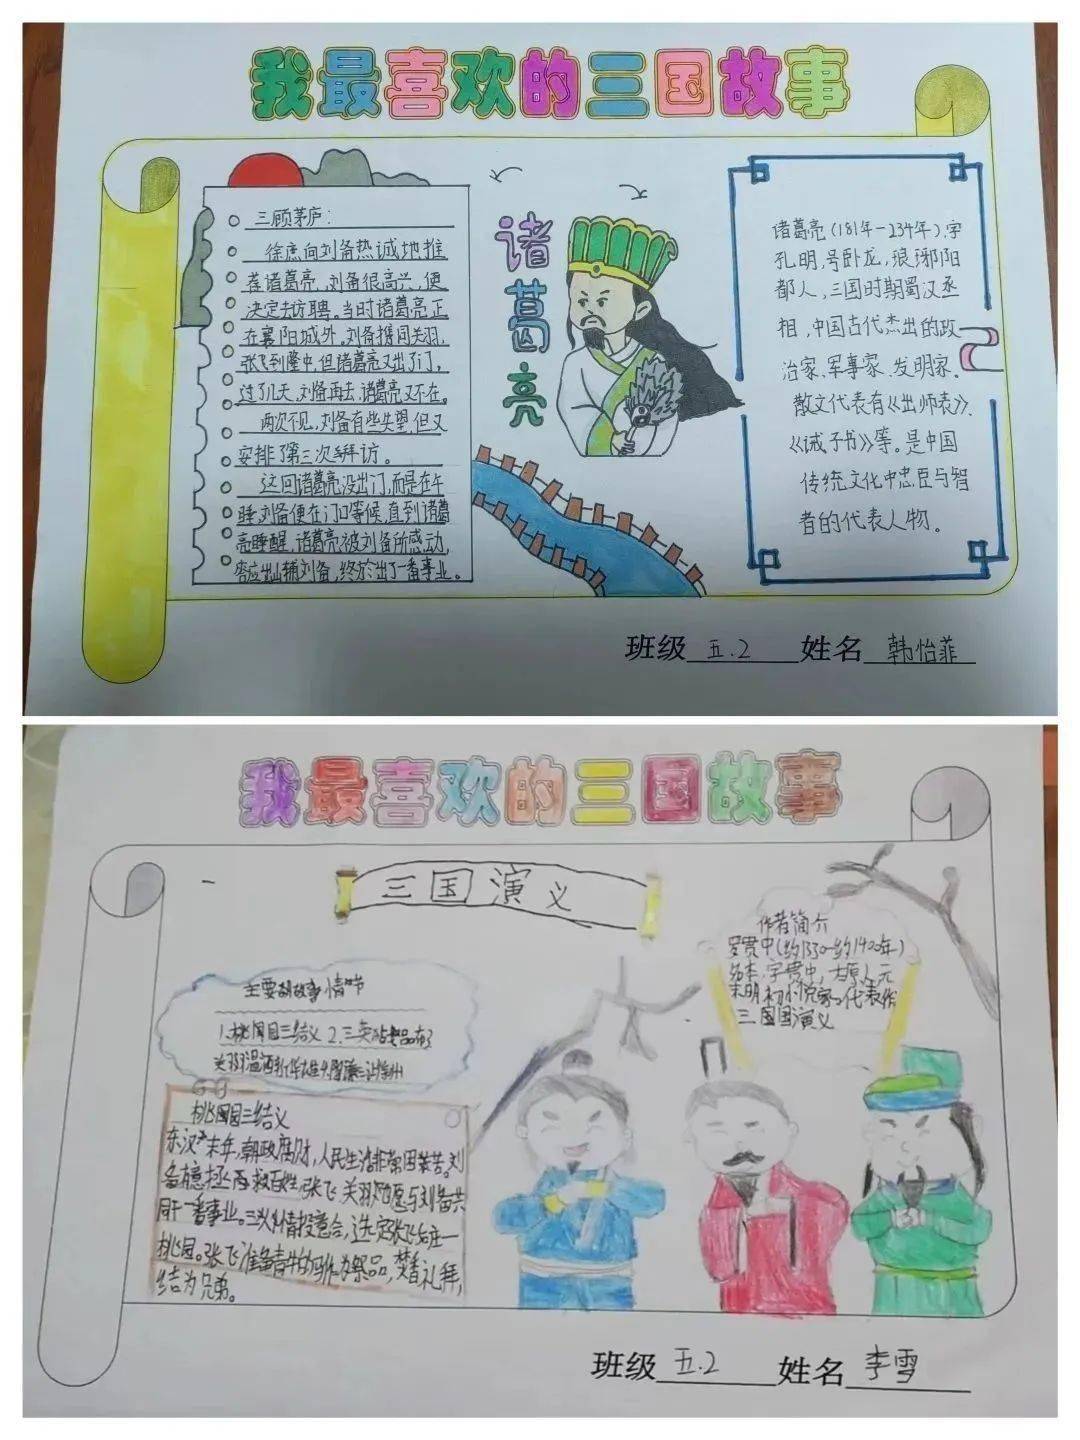 我最喜欢的三国故事
三顾茅庐:
徐庶向刘备热诚地推
荐诸葛亮,刘备很高兴,便
决定去访聘。当时诸葛亮正
在襄阳城外,刘备携同关羽,
张飞到隆中,但诸葛亮又出了门,
过了几天,刘备再去,诸葛亮又不在。
两次不见,刘备有些失望,但又
安排了第三次拜访。
这回诸葛亮没出门,而是在午
睡,刘备便在门口等候,直到诸葛
亮睡醒,诸葛亮被刘备所感动,
答应出山辅刘备,终於出了一番事业。
诸葛亮
诸葛亮(181年-234年),字
孔明,号卧龙,琅琊阳
都人,三国时期蜀汉丞
相,中国古代杰出的政
治家、军事家、发明家。
散文代表有《出师表》、
《诫子书》等。是中国
传统文化中忠臣与智
者的代表人物。
班级 五.2 姓名 韩怡菲
我最喜欢的三国故事
三国演义
作者简介
罗贯中(约1330-约1400年)
名本,字贯中,太原人,元
末明初小说家,代表作
三国国演义
主要故事情节
1.桃园三结义 2.三英战吕布3
关羽温酒斩华雄
桃园三结义
东汉末年,朝政腐财,人民生活非常困苦。刘
备有意拯救百姓,张飞、关羽愿与刘备共
同干一番事业。三人情投意合,选定张飞庄
桃园。张飞准备青牛白马作为祭品,焚香礼拜,
结为兄弟。
班级 五.2 姓名 李雪